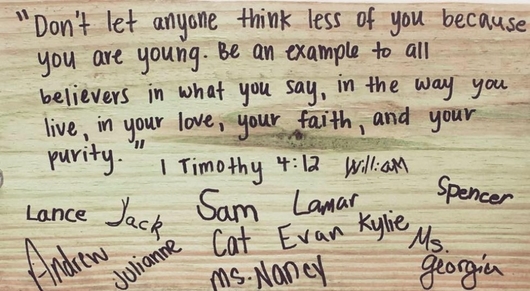 "Don't let anyone think less of you because
you are young. Be an example to all
believers in what you say, in the way you
live, in your love, your faith, and your
purity." 1 Timothy 4:12 William
Lance Jack Sam Lamar Spencer
Andrew Julianne Cat Evan Kylie Ms.
Ms. Nancy Georgia